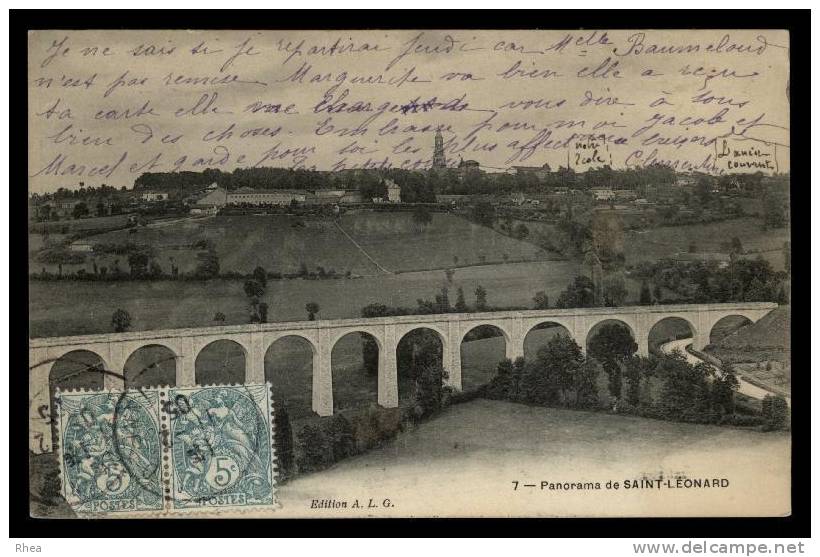 Je ne sais si je repartirai jeudi car Melle Baumeloud
n'est pas remise Marguerite va bien elle a reçu
ta carte elle me charge de vous dire à tous
bien des choses. Embrasse pour moi Jacob et
Marcel et garde pour toi les plus affectueux baisers
Ta petite Clementine
notre
école
couvent
5c 5c
POSTES POSTES
7 — Panorama de SAINT-LÉONARD
Edition A. L. G.
Rhea
http://www.delcampe.net